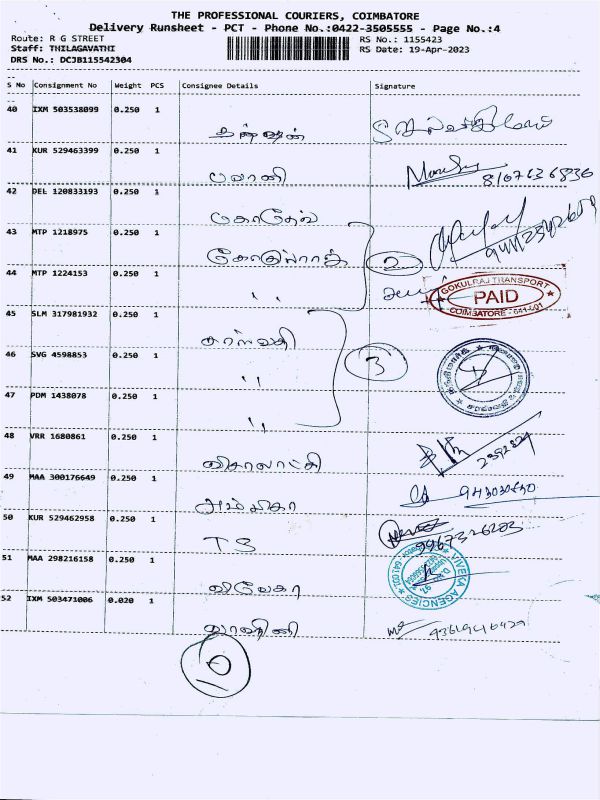 THE PROFESSIONAL COURIERS, COIMBATORE
Delivery Runsheet - PCT - Phone No.:0422-3505555 - Page No.:4
Route: R G STREET RS No.: 1155423
Staff: THILAGAVATHI RS Date: 19-Apr-2023
DRS No.: DCJB115542304
S No Consignment No Weight PCS Consignee Details Signature
40 IXM 503538099 0.250 1
41 KUR 529463399 0.250 1
பவானி 8107636836
42 DEL 120833193 0.250 1
43 MTP 1218975 0.250 1
கோகுல்ராஜ் 2
44 MTP 1224153 0.250 1
" GOKULRAJ TRANSPORT
PAID
COIMBATORE - 641 001
45 SLM 317981932 0.250 1
46 SVG 4598853 0.250 1
" 3
47 PDM 1438078 0.250 1
"
48 VRR 1680861 0.250 1
விசாலாட்சி
49 MAA 300176649 0.250 1
அம்பிகா
50 KUR 529462958 0.250 1
TS 9967326203
51 MAA 298216158 0.250 1
விவேகா VIVEKA AGENCIES
52 IXM 503471006 0.020 1